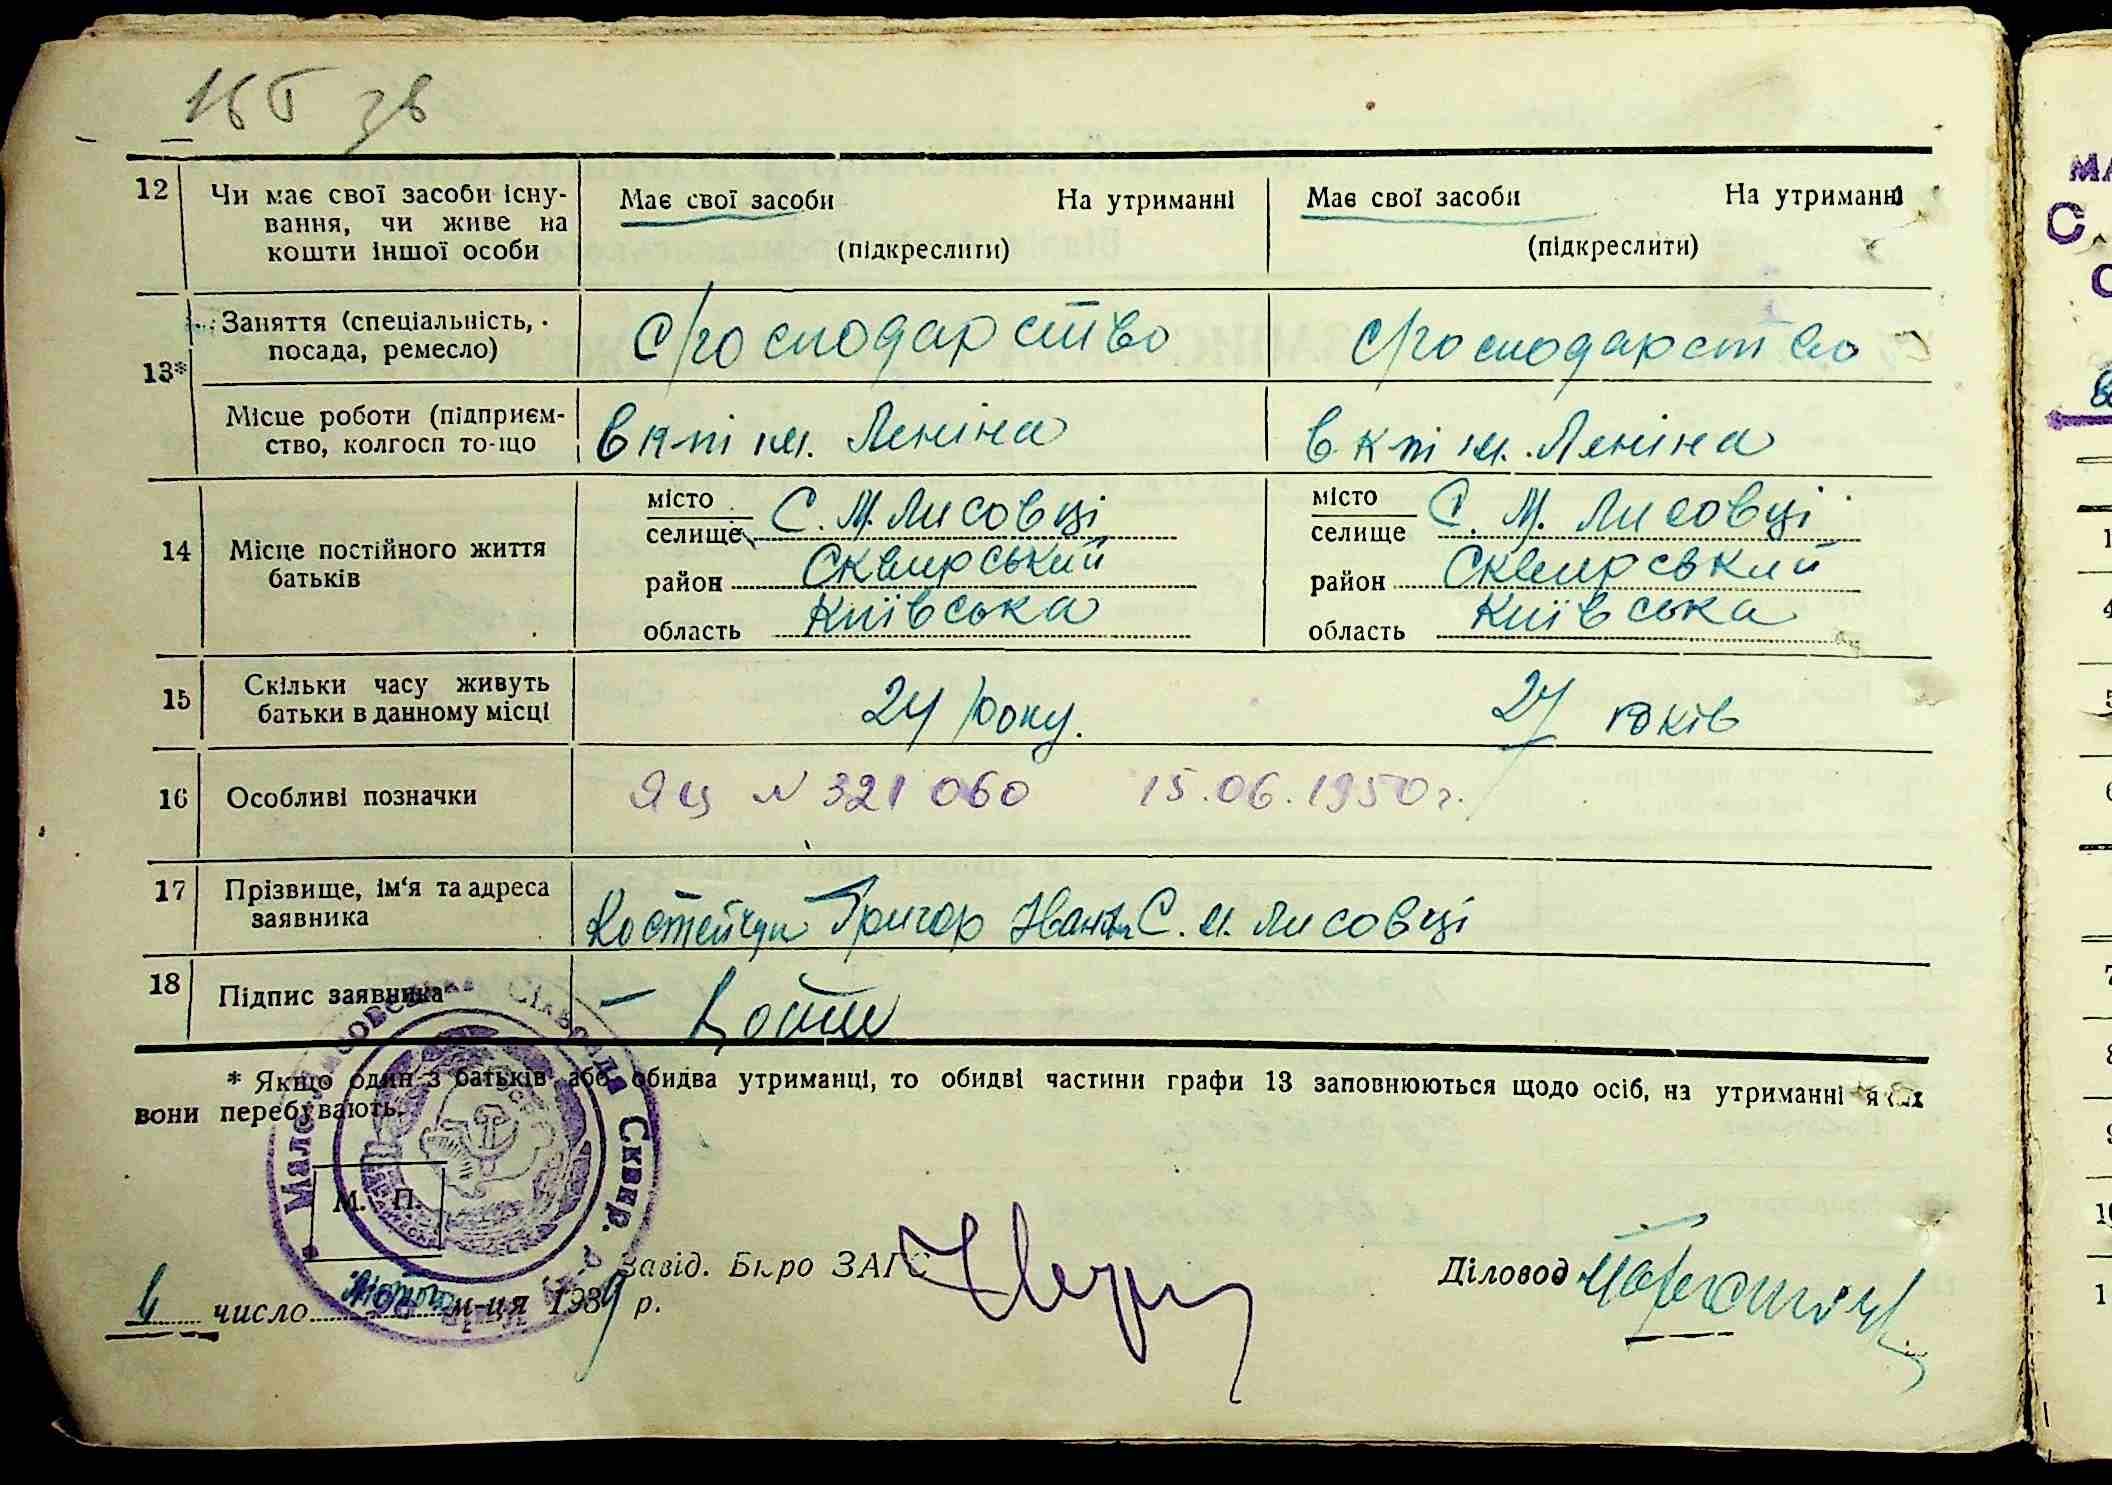 12 Чи має свої засоби існу-
вання, чи живе на
кошти іншої особи
Має свої засоби На утриманні
(підкреслити)
Має свої засоби На утриманні
(підкреслити)
13* Заняття (спеціальність,
посада, ремесло)
с/господарство
с/господарство
Місце роботи (підприєм-
ство, колгосп то-що
В к-пі ім. Леніна
В к-пі ім. Леніна
14 Місце постійного життя
батьків
місто
селище С. М. Лисовці
район Сквирський
область Київська
місто
селище С. М. Лисовці
район Сквирський
область Київська
15 Скільки часу живуть
батьки в данному місці
24 року.
27 років
16 Особливі позначки
ЯЦ № 321060 15.06.1950 г.
17 Прізвище, ім'я та адреса
заявника
Григор Іван С. М. Лисовці
18 Підпис заявника
* Якщо один з батьків або обидва утриманці, то обидві частини графи 13 заповнюються щодо осіб, на утриманні яких
вони перебувають.
М. П.
Завід. Бюро ЗАГС
Діловод
число лютого м-ця 1939 р.